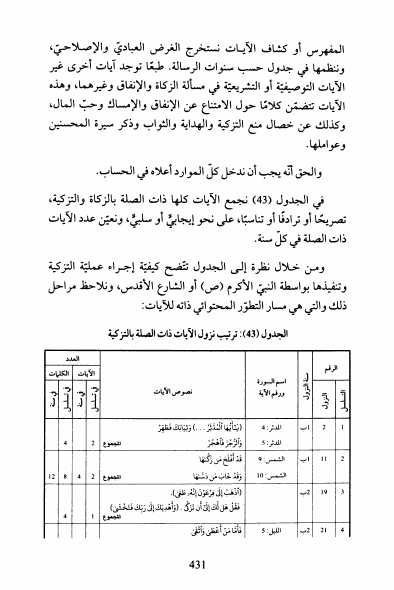 المفهرس أو كشاف الآيـات نستخرج الغرض العباديّ والإصـلاحـيّ،
وننظمها في جدول حسب سنوات الرسالة. طبعًا توجد آيات أخرى غير
الآيات التوصيفيّة أو التشريعيّة في مسألة الزكاة والإنفاق وغيرهما، وهذه
الآيات تتضمّن كلامًا حول الامتناع عن الإنفاق والإمساك وحبّ المال،
وكذلك عن خصال منع التزكية والهداية والثواب وذكر سيرة المحسنين
وعواملها.
والحق أنّه يجب أن ندخل كلّ الموارد أعلاه في الحساب.
في الجدول (43) نجمع الآيات كلها ذات الصلة بالزكاة والتزكية،
تصريحًا أو ترادفًا أو تناسبًا، على نحو إيجابيٍّ أو سلبيٍّ، ونعيّن عدد الآيات
ذات الصلة في كلّ سنة.
ومـن خـلال نظرة إلـى الجدول تتّضح كيفيّة إجـراء عمليّة التزكية
وتنفيذها بواسطة النبيّ الأكرم (ص) أو الشارع الأقدس، ونلاحظ مراحل
ذلك والتي هي مسار التطوّر المحتوائي ذاته للآيات:
الجدول (43): ترتيب نزول الآيات ذات الصلة بالتزكية
الرقم سنة النزول اسم السورة ورقم الآية نصوص الآيات العدد
التسلسل النزول الآيات الكلمات
في تسلسل في سنة في تسلسل في سنة
1 2 1ب المدثر: 4 (يَٰٓأَيُّهَا ٱلْمُدَّثِّرُ ...) وَثِيَابَكَ فَطَهِّرْ
المدثر: 5 وَٱلرُّجْزَ فَٱهْجُرْ المجموع 2 4
2 11 1ب الشمس: 9 قَدْ أَفْلَحَ مَن زَكَّىٰهَا
الشمس: 10 وَقَدْ خَابَ مَن دَسَّىٰهَا المجموع 2 4 8 12
3 19 2ب (ٱذْهَبْ إِلَىٰ فِرْعَوْنَ إِنَّهُۥ طَغَىٰ).
فَقُلْ هَل لَّكَ إِلَىٰٓ أَن تَزَكَّىٰ. (وَأَهْدِيَكَ إِلَىٰ رَبِّكَ فَتَخْشَىٰ)
المجموع 1 4
4 21 2ب الليل: 5 فَأَمَّا مَنْ أَعْطَىٰ وَٱتَّقَىٰ
431